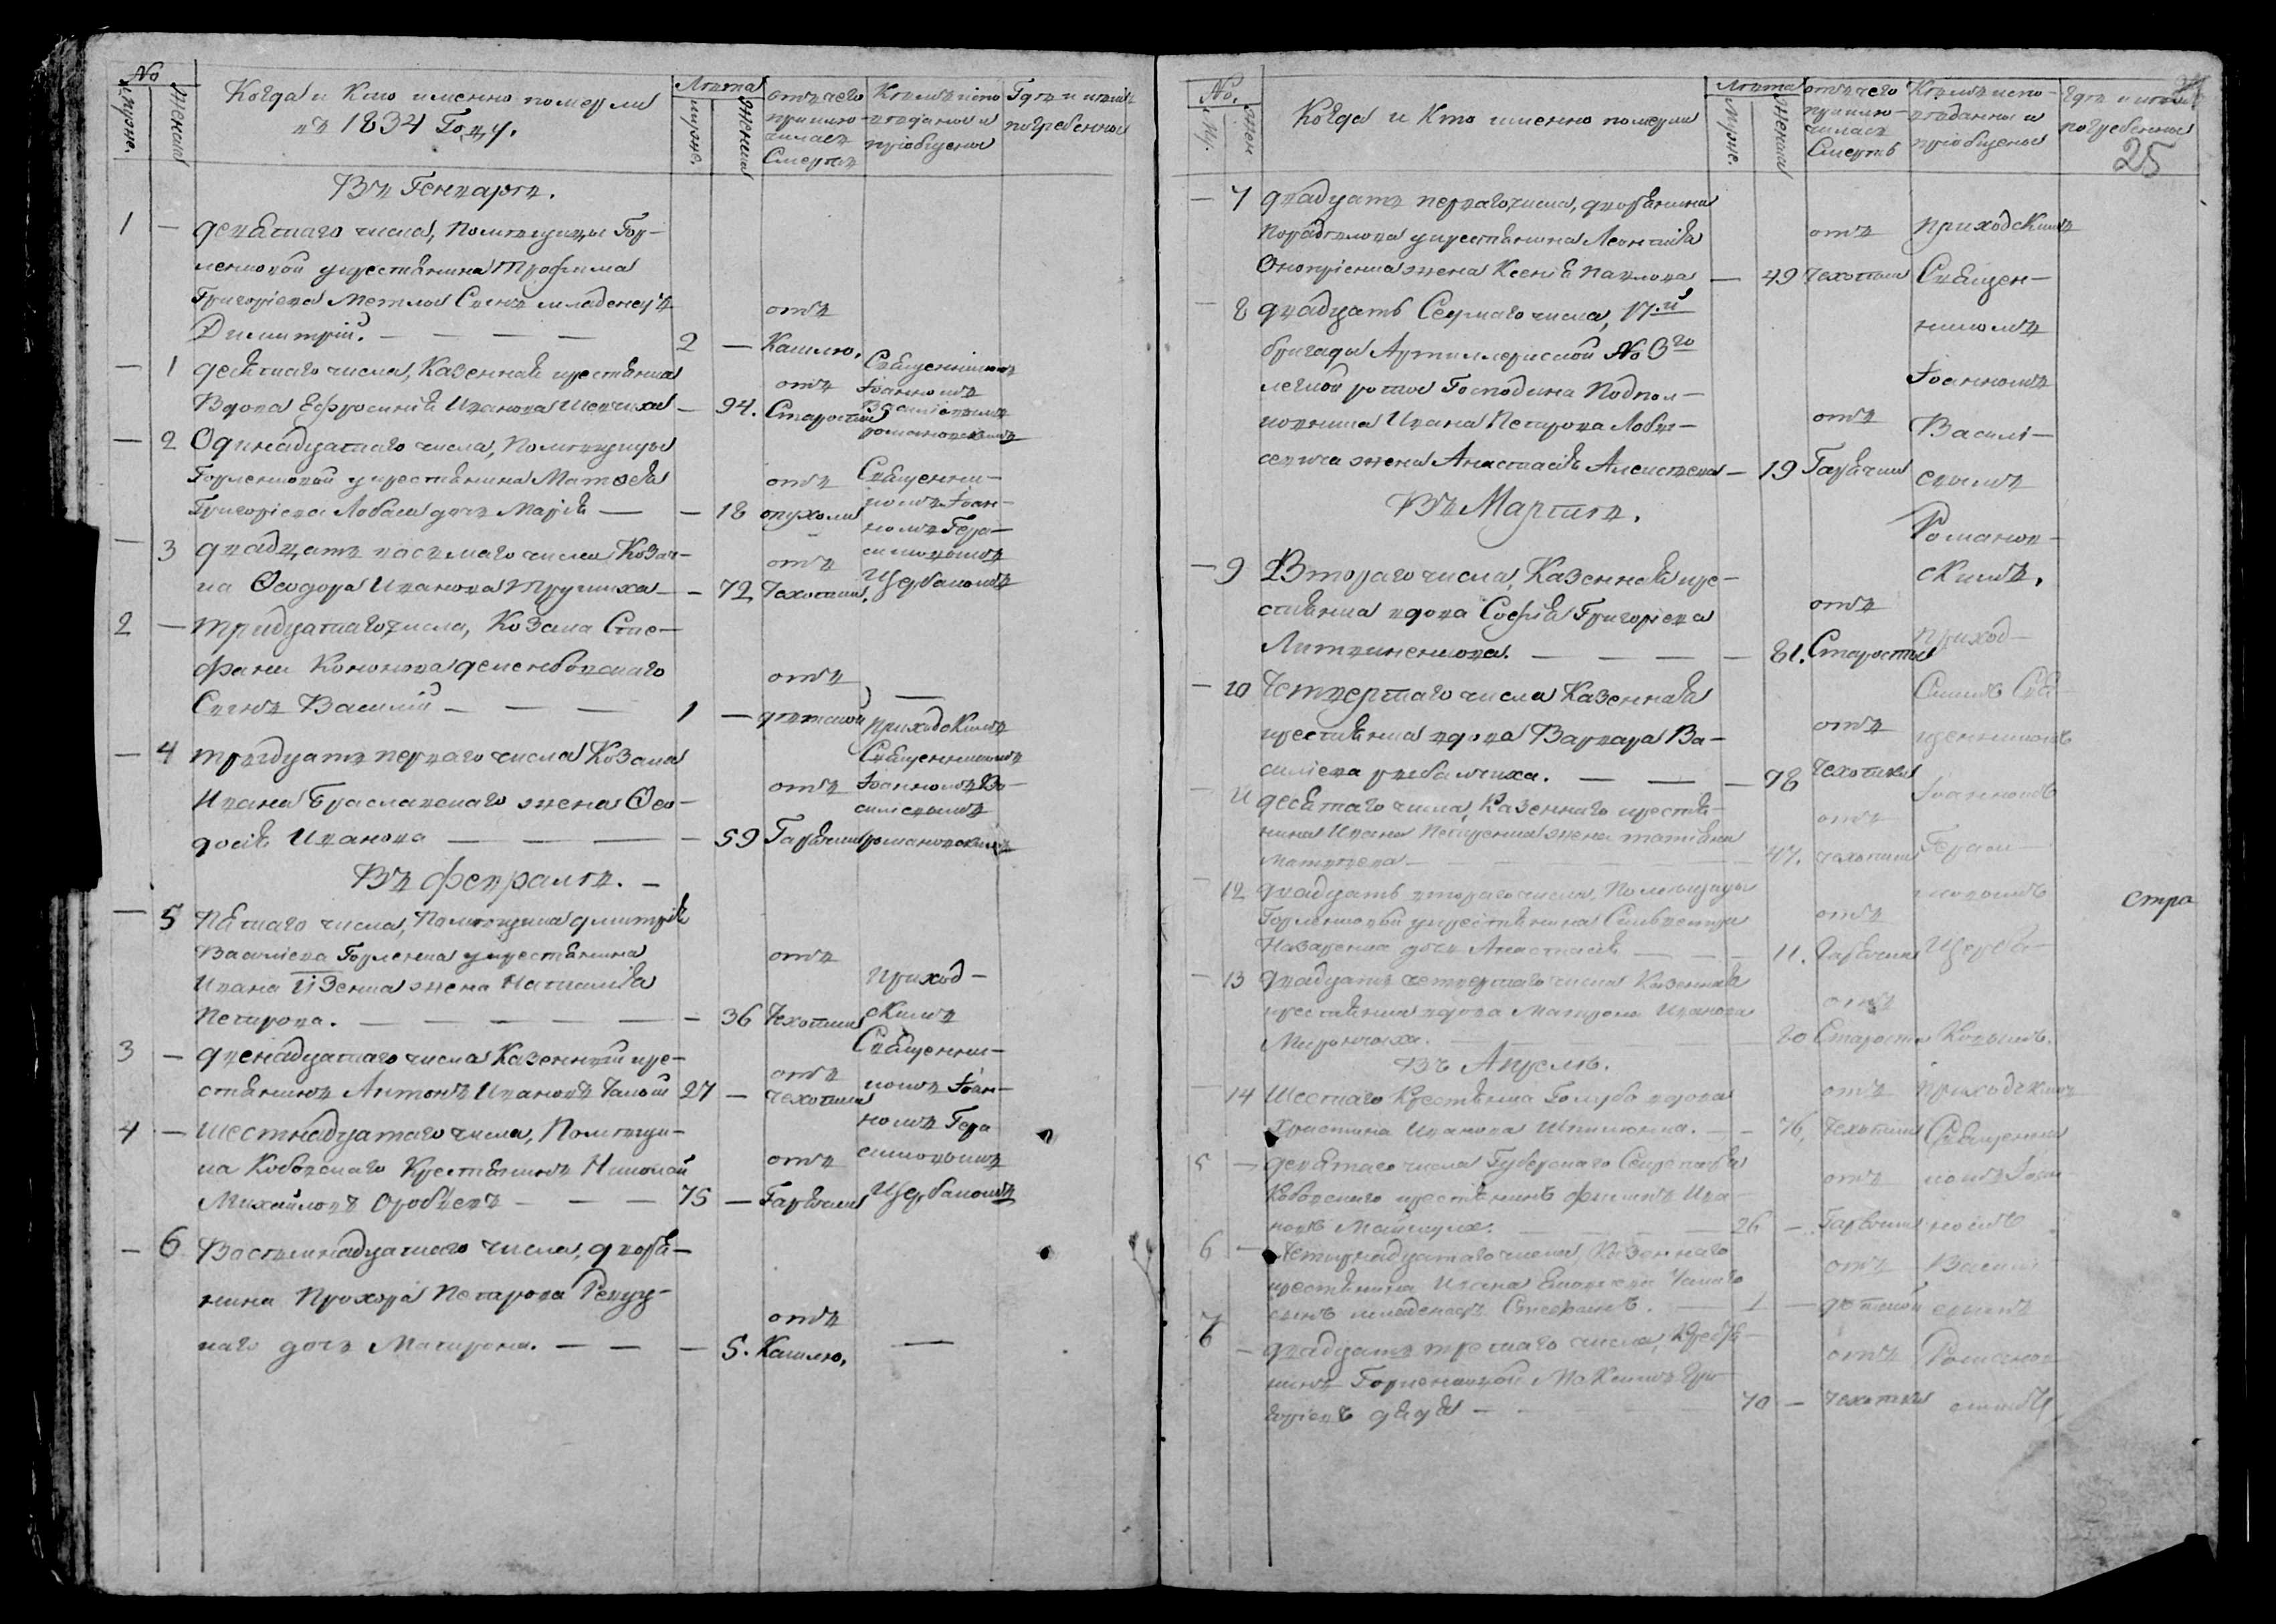 No
мужс.
женска
Когда и Кто именно померли
въ 1834 Году.
Лѣта
мужс.
женска
отъ чего
приклю-
чилась
Смерть
Кѣмъ испо-
вѣданы и
пріобщены
Гдѣ и кѣмъ
погребенны
Въ Генварѣ.
1 — девятаго числа, Помѣщицы Гор-
ленковой крестянина Трофима
Григоріева Метлы Сынъ младенецъ
Димитрій. — — — 2 — отъ Кашлю.
— 1 девятаго числа, Казенная крестянка
Вдова Ефросинія Иванова Шевчиха — 94. отъ Старости
Священникомъ
Іоанномъ
Василіевымъ
романовскимъ
— 2 Одинадцатаго числа, Помѣщицы
Горленковой крестянина Матѳея
Григоріева Лобаса дочь Марія — — 18 отъ опухоли
Священни-
комъ Іоан-
номъ Гера-
симовымъ
Щербаковъ
— 3 двадцать восмаго числа Козач-
ка Ѳеодора Иванова Трушиха — — 72 отъ Чехотки.
2 — тридцатаго числа, Козака Сте-
фана Кононова
Сынъ Василій — — — 1 — отъ дѣтской —
— 4 тридцать перваго числа Козака
Ивана Браславскаго жена Ѳео-
досія Иванова — — — 59 отъ Гарячки
приходскимъ
Священникомъ
Іоанномъ Ва-
силіевымъ
романовскимъ
Въ февралѣ. —
— 5 Пятаго числа, Помѣщика дмитрія
Василіева Горленка крестянина
Ивана жена Наталія
Петрова. — — — — — — 36 отъ Чехотки
приход-
скимъ
Священни-
комъ Іоан-
номъ Гера
симовымъ
Щербаковъ
3 — двенадцатаго числа Казенный кре-
стянинъ Антонъ Ивановъ 27 — отъ чехотки
4 — шестнадцатаго числа, Помѣщи-
ка Кобовскаго Крестянинъ Николай
Михайловъ — — — 75 — отъ Гарячки
— 6 Восемнадцатаго числа, дворя-
нина Прохора Петрова
каго дочь Матрона. — — — 5. отъ Кашлю, —
No.
Му.
жен
Когда и Кто именно померли
Лѣта
мужс.
женска
отъ чего
приклю-
чилась
Смерть
Кѣмъ испо-
вѣданны и
пріобщены
Гдѣ и кѣмъ
погребенны
25
— 7 двадцать перваго числа, дворянина
крестянина Леонтія
Оноприенка жена Ксенія Павлова — 49 отъ Чехотки
приходскимъ
Священ-
никомъ
Іоанномъ
Василі-
евымъ
Романов-
скимъ.
— 8 двадцать Седмаго числа, 17.й
бригады Артиллериской No 3го
легкой роты Господина Подпол-
ковника Ивана Петрова
жена Анастасія Алексѣева — 19 отъ Гарячки
Въ Мартѣ.
— 9 Втораго числа, Казенная кре-
стянка вдова Софія Григоріева
Литвиненкова. — — — — 81. отъ Старости
приход-
скимъ Свя-
щенникомъ
Іоанномъ
Гераси-
мовымъ
Щерба-
ковымъ.
— 10 Четвертаго числа Казенная
крестянка вдова Варвара Ва-
силіева рибалчиха. — — — 98 отъ Чехотки
— 11 десятаго числа, Казеннаго крестя-
нина Ивана жена татіана
Матвѣева — — 47. отъ чехотки
— 12 двадцать втораго числа, Помещицы
Горленковой крестянина Силвестра
Назаренка дочь Анастасія — — — 11. отъ Гарячки
стра
— 13 двадцать четвертаго числа Казенная
крестянка вдова Матрона Иванова
Мирончиха. — 80 отъ Старости
Въ Апрелѣ.
— 14 Шестаго Крестянка Голуба вдова
Христина Иванова — — 76, отъ Чехотки
приходскимъ
Священни
комъ Іоан
номъ
Василі
евымъ
Романов
5 — девятаго числа Губерскаго Секретаря
Кобовскаго крестянинъ филипъ Ива-
новъ — 26 — отъ Гарячки
6 — Четирнадцатаго числа, Казеннаго
крестянина Ивана
сынъ младенецъ Стефанъ. — 1 — отъ дѣтской
7 — двадцать третаго числа, Крестя-
нинъ Горленковой Максимъ Гри-
горіевъ — 70 — отъ чехотки